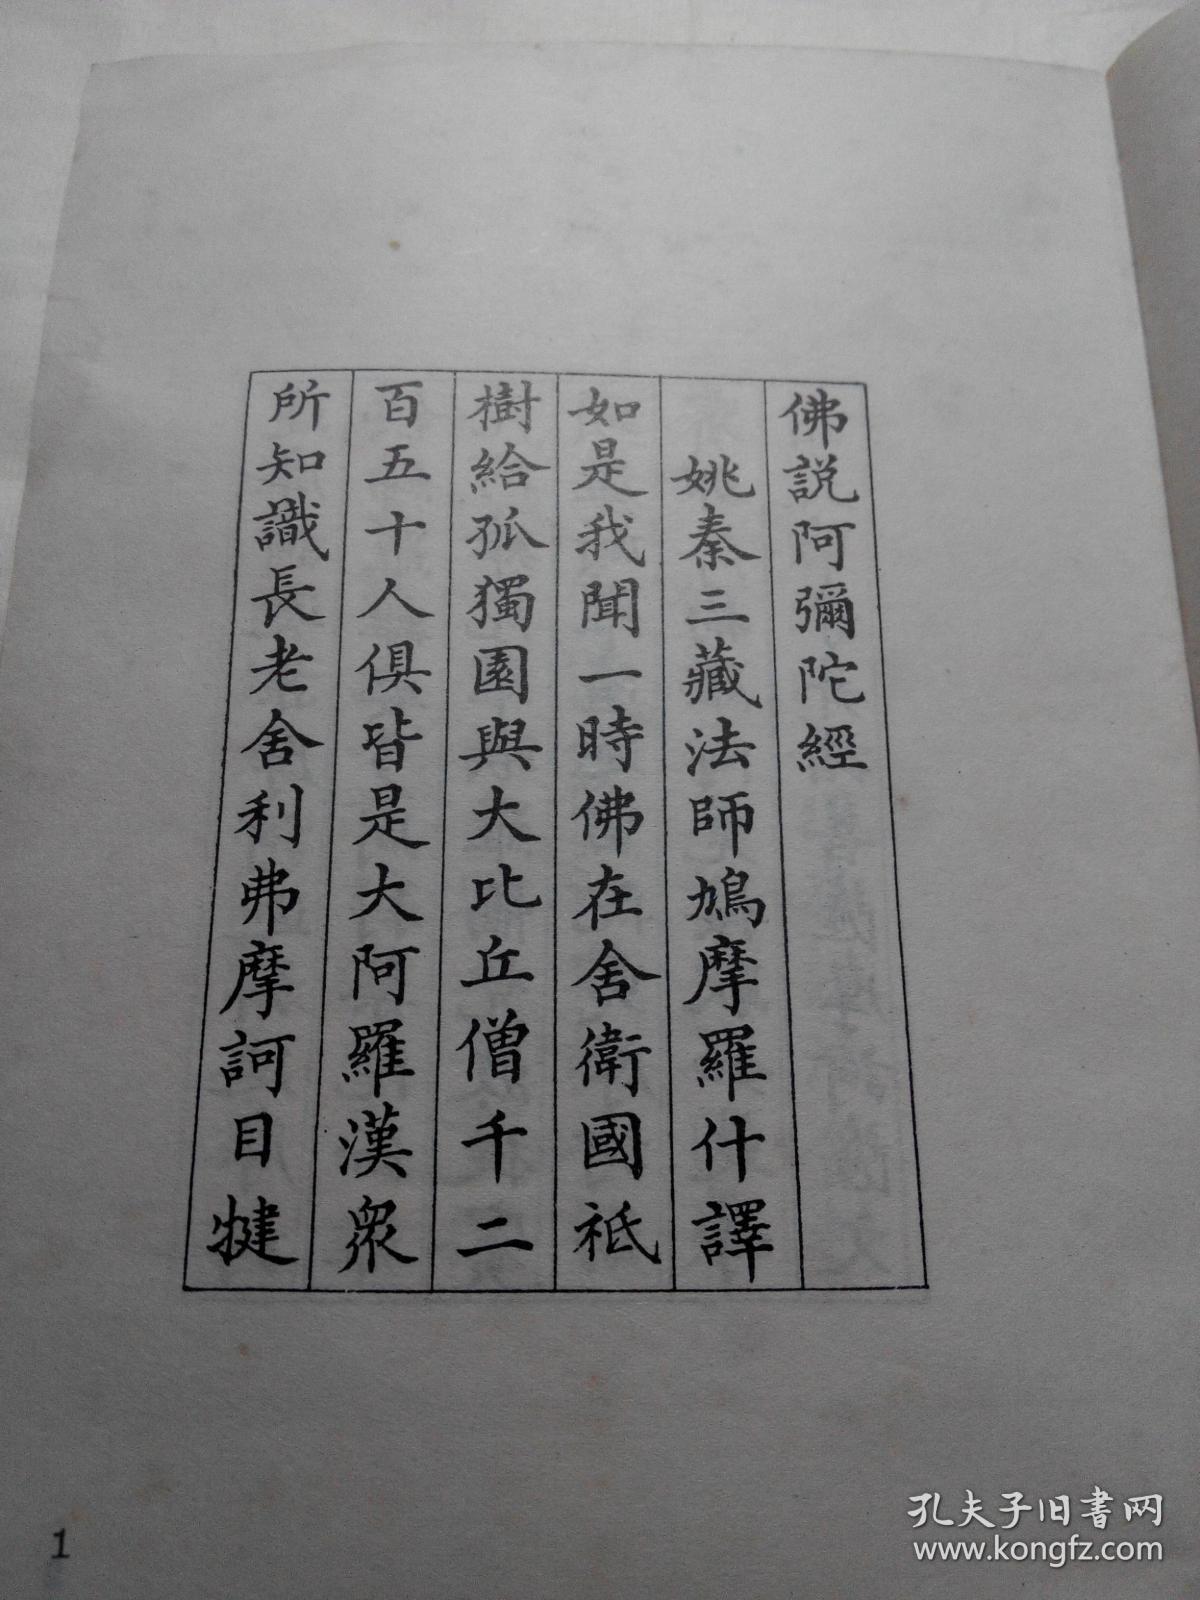 佛說阿彌陀經
姚秦三藏法師鳩摩羅什譯
如是我聞一時佛在舍衛國祇
樹給孤獨園與大比丘僧千二
百五十人俱皆是大阿羅漢眾
所知識長老舍利弗摩訶目犍
1
孔夫子旧书网
www.kongfz.com